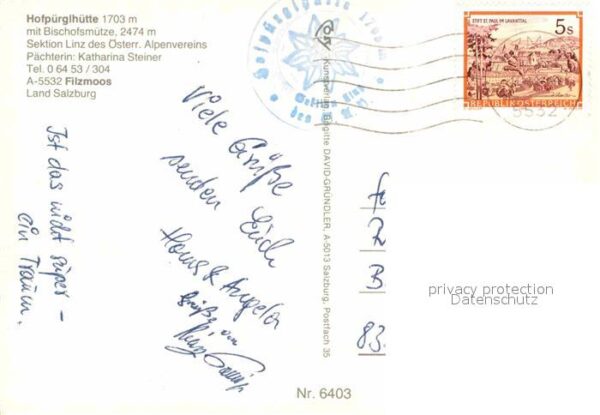 Hofpürglhütte 1703 m
mit Bischofsmütze, 2474 m
Sektion Linz des Österr. Alpenvereins
Pächterin: Katharina Steiner
Tel. 0 64 53 / 304
A-5532 Filzmoos
Land Salzburg
Hofpürglhütte 1703 m
STIFT ST. PAUL IM LAVANTTAL
5s
REPUBLIK ÖSTERREICH
5532
Viele Grüße
senden Euch
Hans & Angela
Ist das nicht super -
ein Traum.
Kunstverlag Brigitte DAVID-GRÜNDLER, A-5013 Salzburg, Postfach 35
Z
B
83.
privacy protection
Datenschutz
Nr. 6403